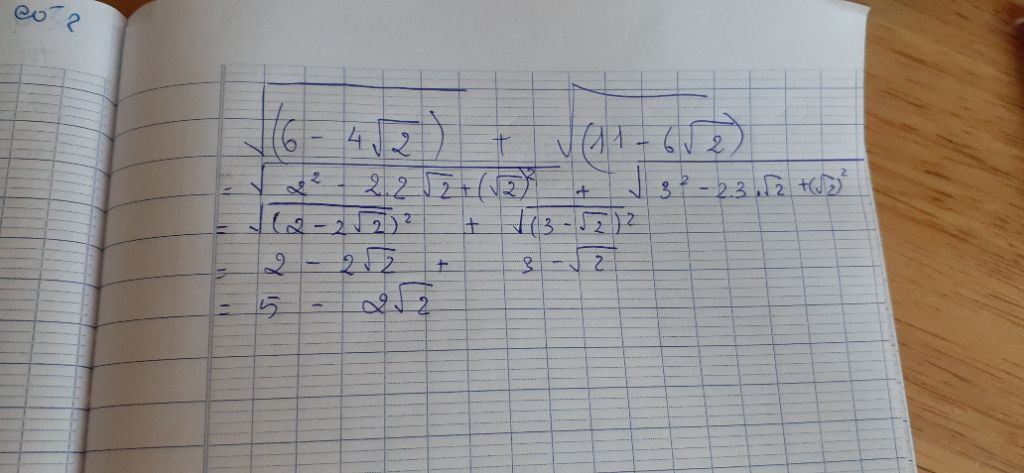 co⁻²
√(6 - 4√2) + √(11 - 6√2)
= √2² - 2.2√2 + (√2)² + √3² - 2.3.√2 + (√2)²
= √(2 - 2√2)² + √(3 - √2)²
= 2 - 2√2 + 3 - √2
= 5 - 2√2